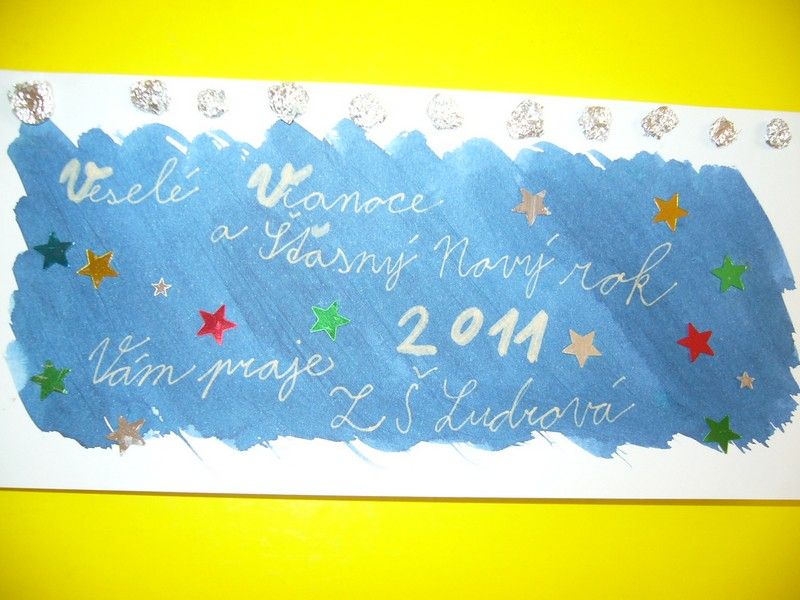 Veselé Vianoce
a Šťasný Nový rok
2011
Vám praje
ZŠ Ludrová